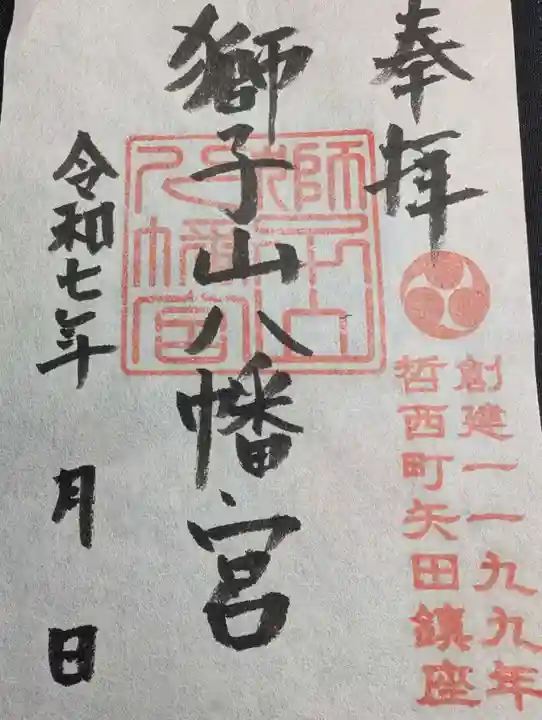 奉拝
創建一一九九年
哲西町矢田鎮座
獅子山八幡宮
令和七年 月 日